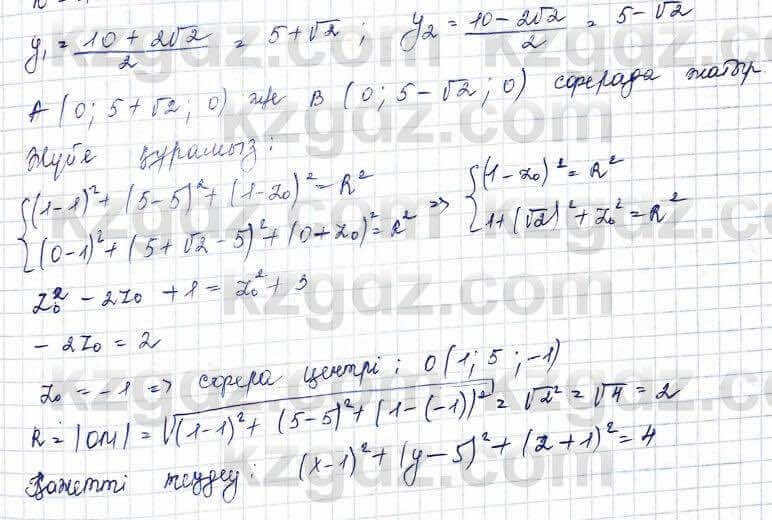 y₁ = (10 + 2√2)/2 = 5 + √2 ; y₂ = (10 − 2√2)/2 = 5 − √2
A (0; 5 + √2; 0) же B (0; 5 − √2; 0) сферада жатыр.
Жүйе құрамыз:
{(1−1)² + (5−5)² + (1−z₀)² = R² => {(1−z₀)² = R²
{(0−1)² + (5+√2−5)² + (0+z₀)² = R² {1+(√2)² + z₀² = R²
z₀² − 2z₀ + 1 = z₀² + 3
− 2z₀ = 2
z₀ = −1 => сфера центрі: O (1; 5; −1)
R = |OM| = √((1−1)² + (5−5)² + (1−(−1))²) = √2² = √4 = 2
Қажетті теңдеу: (x−1)² + (y−5)² + (z+1)² = 4
kzgdz.com